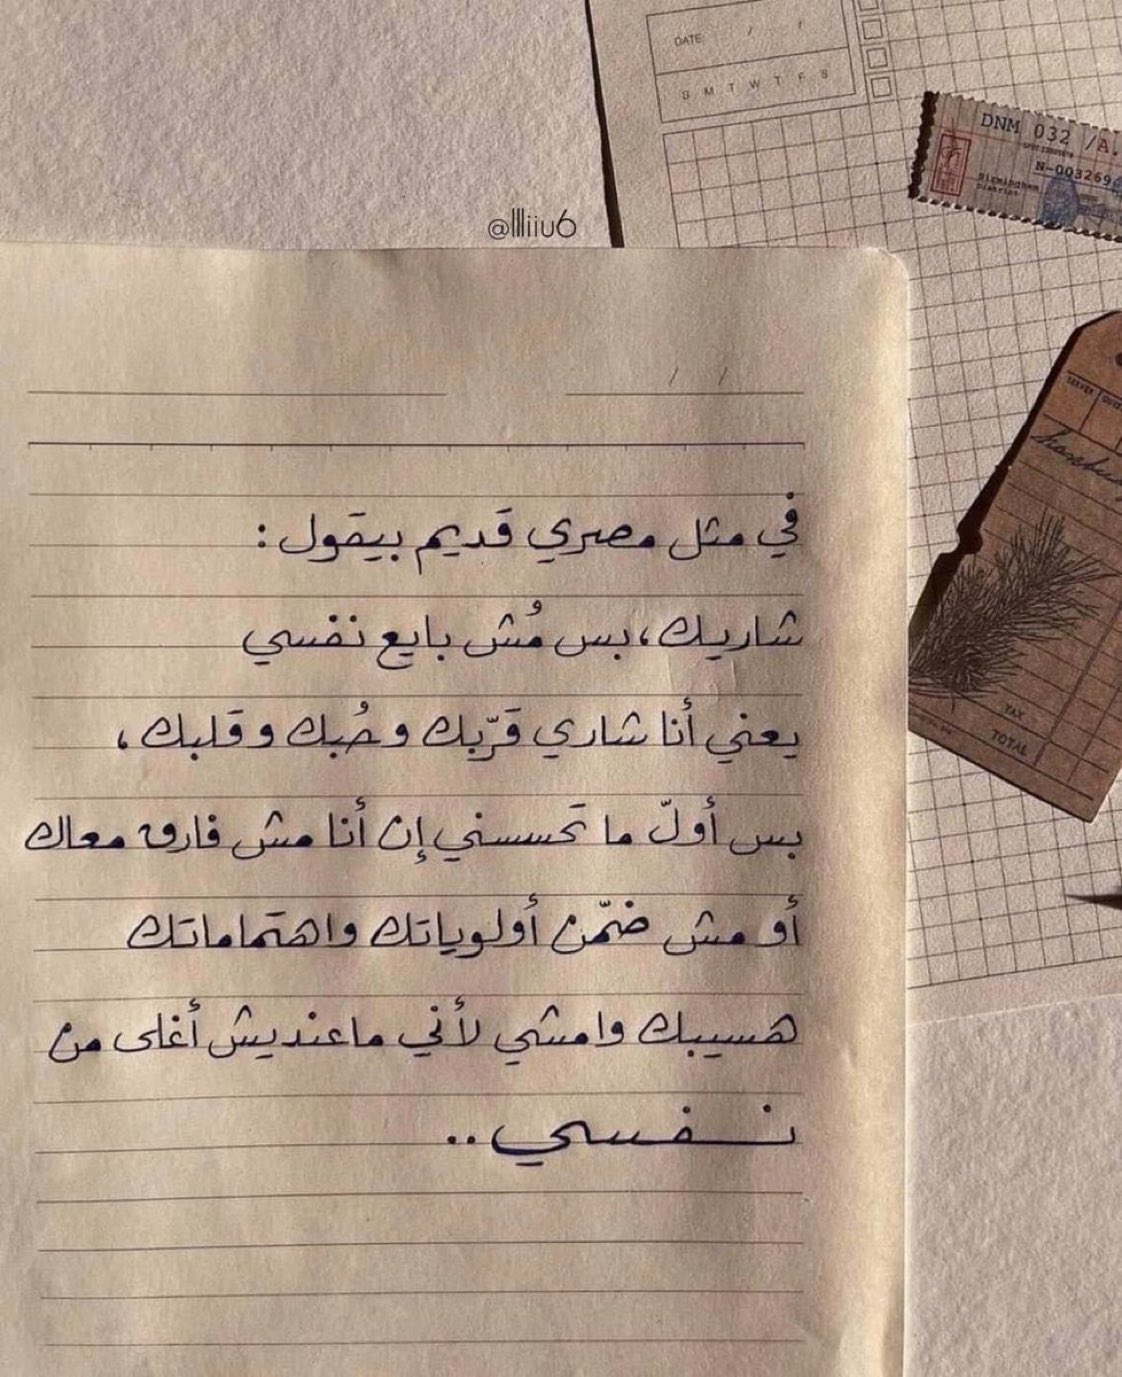 DATE: / /
S M T W T F S
DNM 032 /A.
N-003269
@lllliiu6
/ /
في مثل مصري قديم بيقول :
شاريك، بس مُش بايع نفسي
يعني أنا شاري قَرّبك وحُبك وقلبك،
بس أولّ ما تَحسسني إن أنا مش فارق معاك
أو مش ضمّن أولوياتك واهتماماتك
هسيبك وامشي لأني ماعنديش أغلى من
نفسي..
TAX
TOTAL